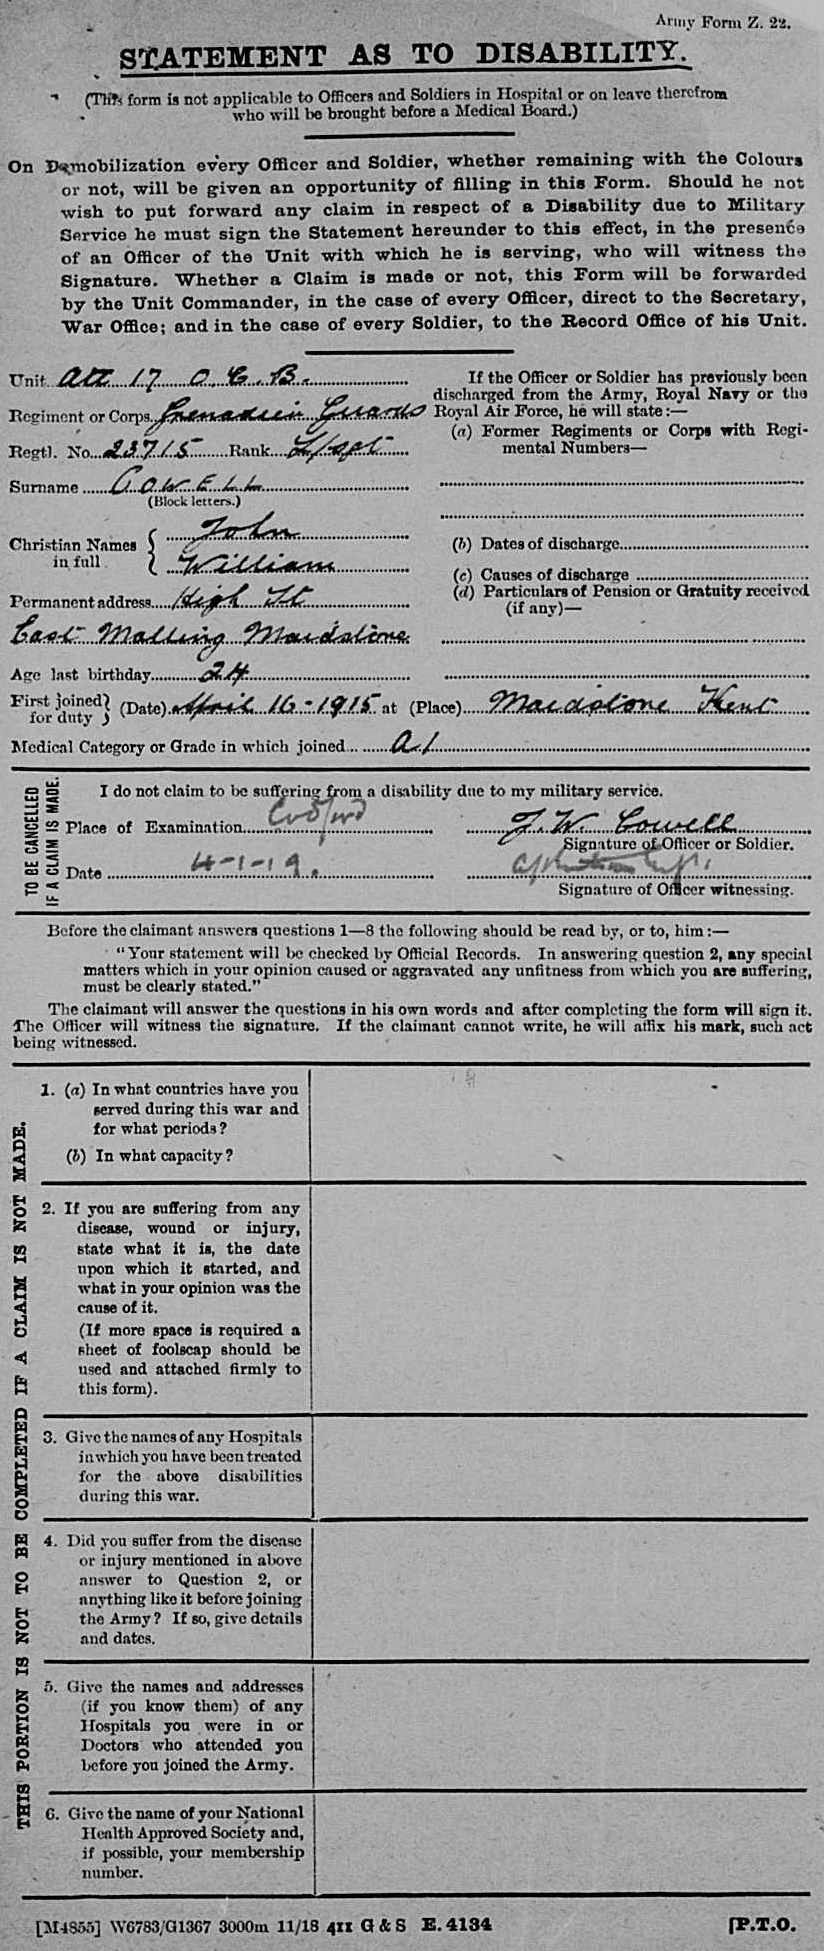 Army Form Z. 22.
STATEMENT AS TO DISABILITY.
(This form is not applicable to Officers and Soldiers in Hospital or on leave therefrom
who will be brought before a Medical Board.)
On Demobilization every Officer and Soldier, whether remaining with the Colours
or not, will be given an opportunity of filling in this Form. Should he not
wish to put forward any claim in respect of a Disability due to Military
Service he must sign the Statement hereunder to this effect, in the presence
of an Officer of the Unit with which he is serving, who will witness the
Signature. Whether a Claim is made or not, this Form will be forwarded
by the Unit Commander, in the case of every Officer, direct to the Secretary,
War Office; and in the case of every Soldier, to the Record Office of his Unit.
Unit Att 17 O.C.B.
Regiment or Corps Grenadier Guards
Regtl. No. 23715 Rank L/Sgt
Surname COWELL
(Block letters.)
Christian Names in full John
William
Permanent address High St
East Malling Maidstone
Age last birthday 24
If the Officer or Soldier has previously been
discharged from the Army, Royal Navy or the
Royal Air Force, he will state:—
(a) Former Regiments or Corps with Regi-
mental Numbers—
(b) Dates of discharge
(c) Causes of discharge
(d) Particulars of Pension or Gratuity received
(if any)—
First joined for duty (Date) April 16-1915 at (Place) Maidstone Kent
Medical Category or Grade in which joined A1
TO BE CANCELLED
IF A CLAIM IS MADE.
I do not claim to be suffering from a disability due to my military service.
Place of Examination Codford J. W. Cowell
Signature of Officer or Soldier.
Date 4-1-19.
Signature of Officer witnessing.
Before the claimant answers questions 1—8 the following should be read by, or to, him:—
"Your statement will be checked by Official Records. In answering question 2, any special
matters which in your opinion caused or aggravated any unfitness from which you are suffering,
must be clearly stated."
The claimant will answer the questions in his own words and after completing the form will sign it.
The Officer will witness the signature. If the claimant cannot write, he will affix his mark, such act
being witnessed.
THIS PORTION IS NOT TO BE COMPLETED IF A CLAIM IS NOT MADE.
1. (a) In what countries have you
served during this war and
for what periods?
(b) In what capacity?
2. If you are suffering from any
disease, wound or injury,
state what it is, the date
upon which it started, and
what in your opinion was the
cause of it.
(If more space is required a
sheet of foolscap should be
used and attached firmly to
this form).
3. Give the names of any Hospitals
in which you have been treated
for the above disabilities
during this war.
4. Did you suffer from the disease
or injury mentioned in above
answer to Question 2, or
anything like it before joining
the Army? If so, give details
and dates.
5. Give the names and addresses
(if you know them) of any
Hospitals you were in or
Doctors who attended you
before you joined the Army.
6. Give the name of your National
Health Approved Society and,
if possible, your membership
number.
[M4855] W6783/G1367 3000m 11/18 411 G & S E. 4134 [P.T.O.